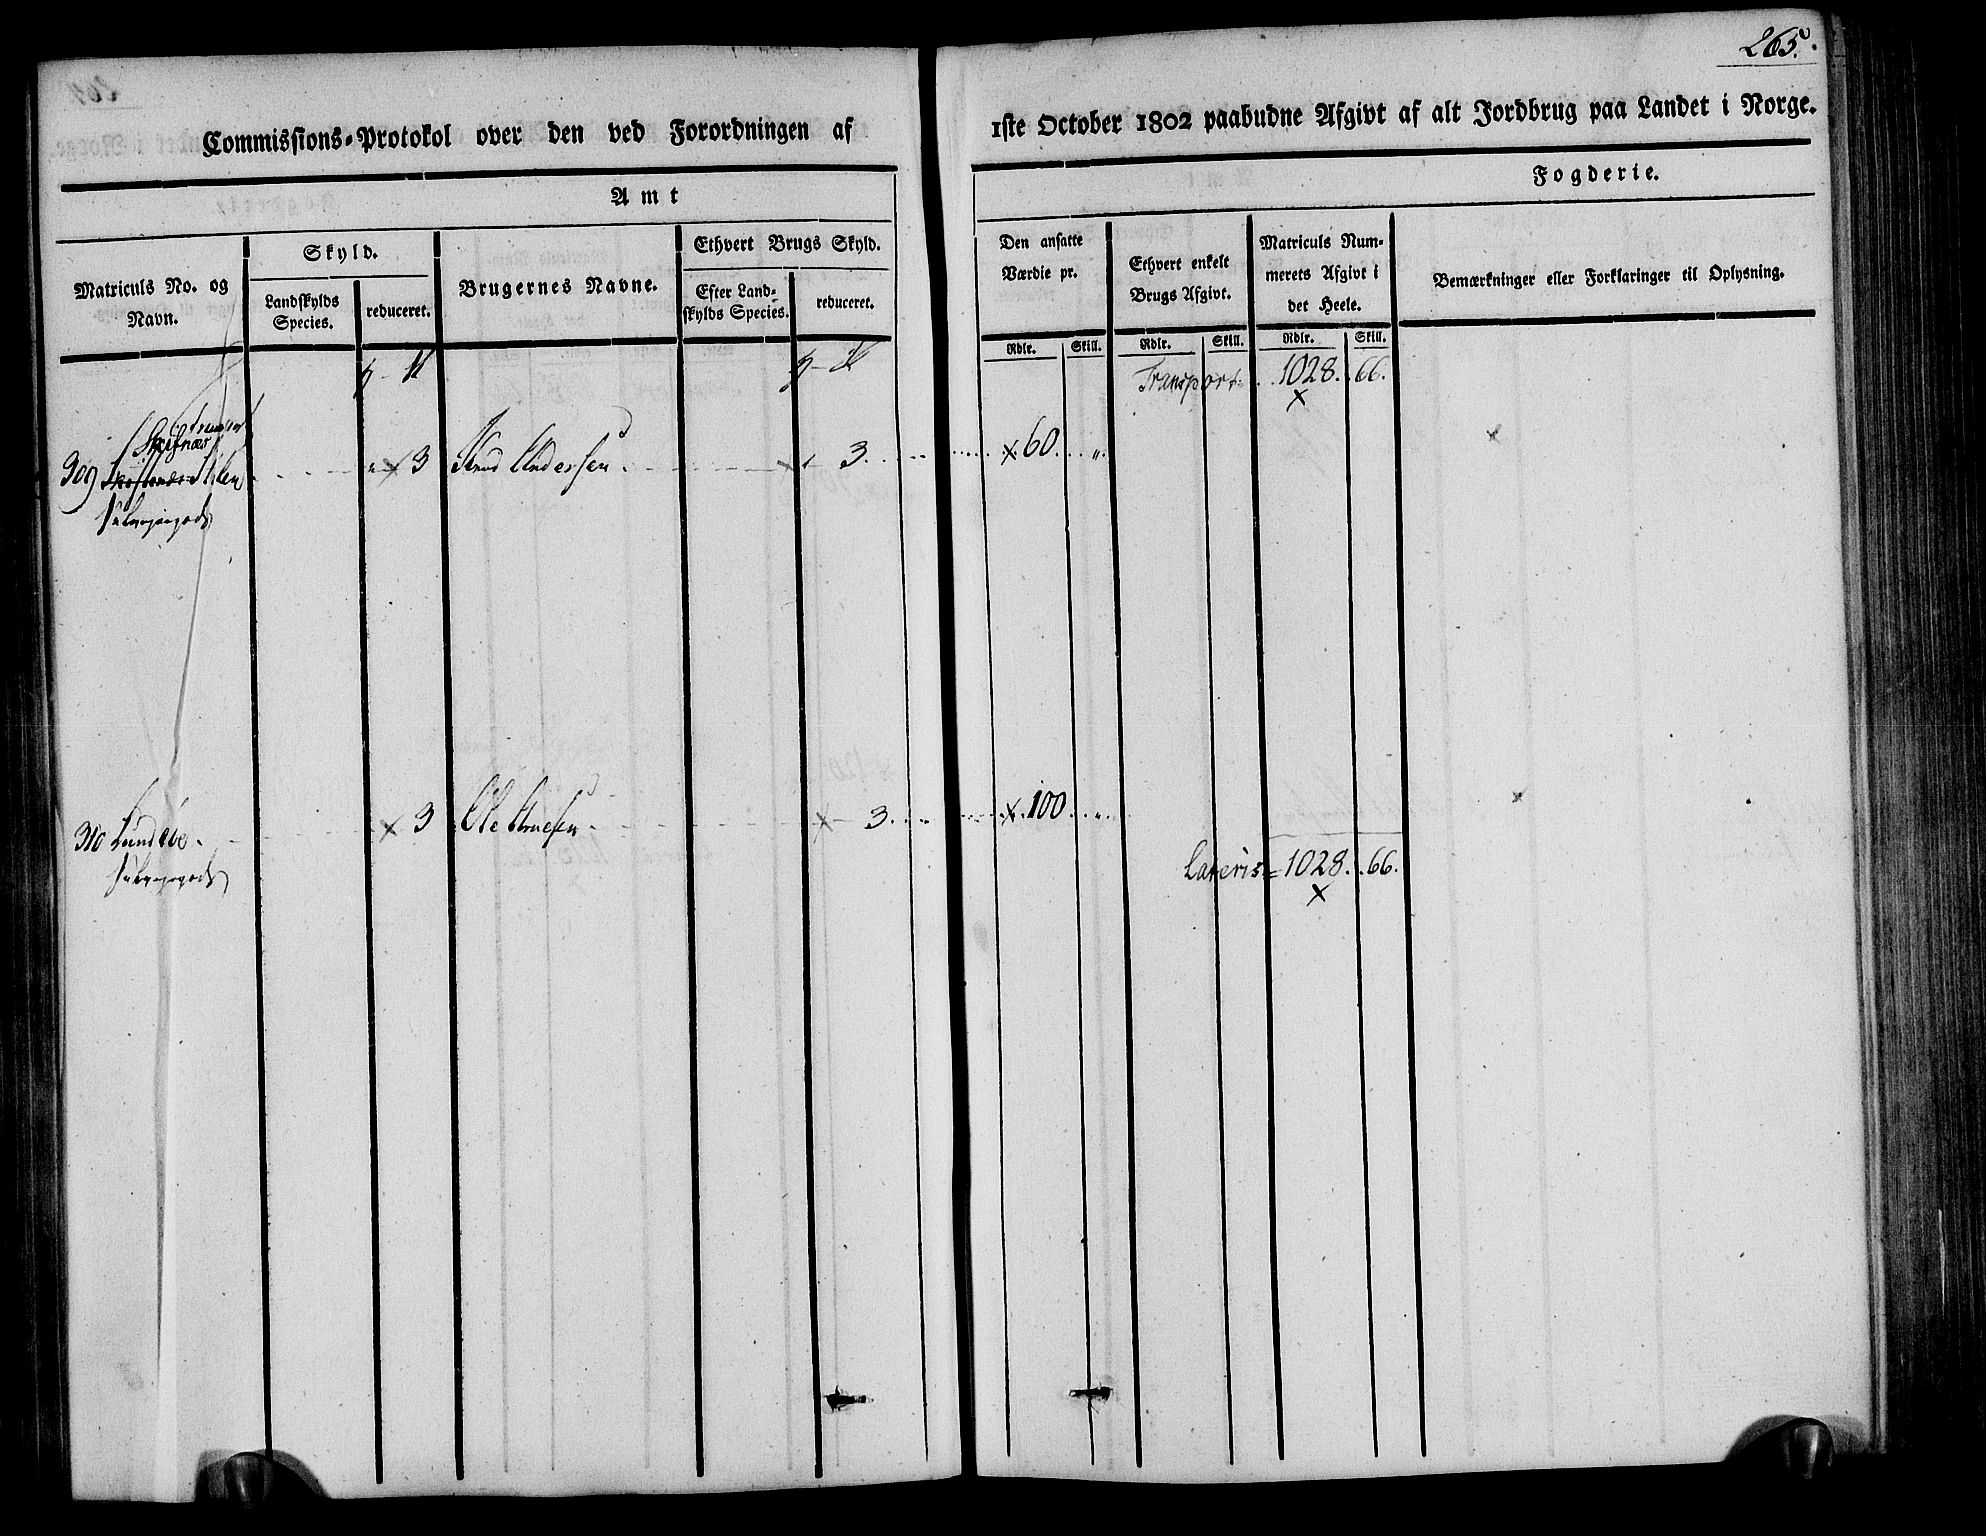 265.
Commissions-Protokol over den ved Forordningen af 1ste October 1802 paabudne Afgivt af alt Jordbrug paa Landet i Norge.
Amt
Fogderie.
Matriculs No. og Navn.
Skyld.
Landskylds Species.
reduceret.
Brugernes Navne.
Ethvert Brugs Skyld.
Efter Landskylds Species.
reduceret.
Den ansatte Værdie pr.
Rdlr. Skill.
Ethvert enkelt Brugs Afgivt.
Rdlr. Skill.
Matriculs Nummerets Afgivt i det Heele.
Rdlr. Skill.
Bemærkninger eller Forklaringer til Oplysning.
Transport 1028. 66.
x
309 x 3 Knud Andersen x 3. x 60. „
310 Lundebe x 3 Ole x 3. x 100 „
Lateris = 1028. 66.
x